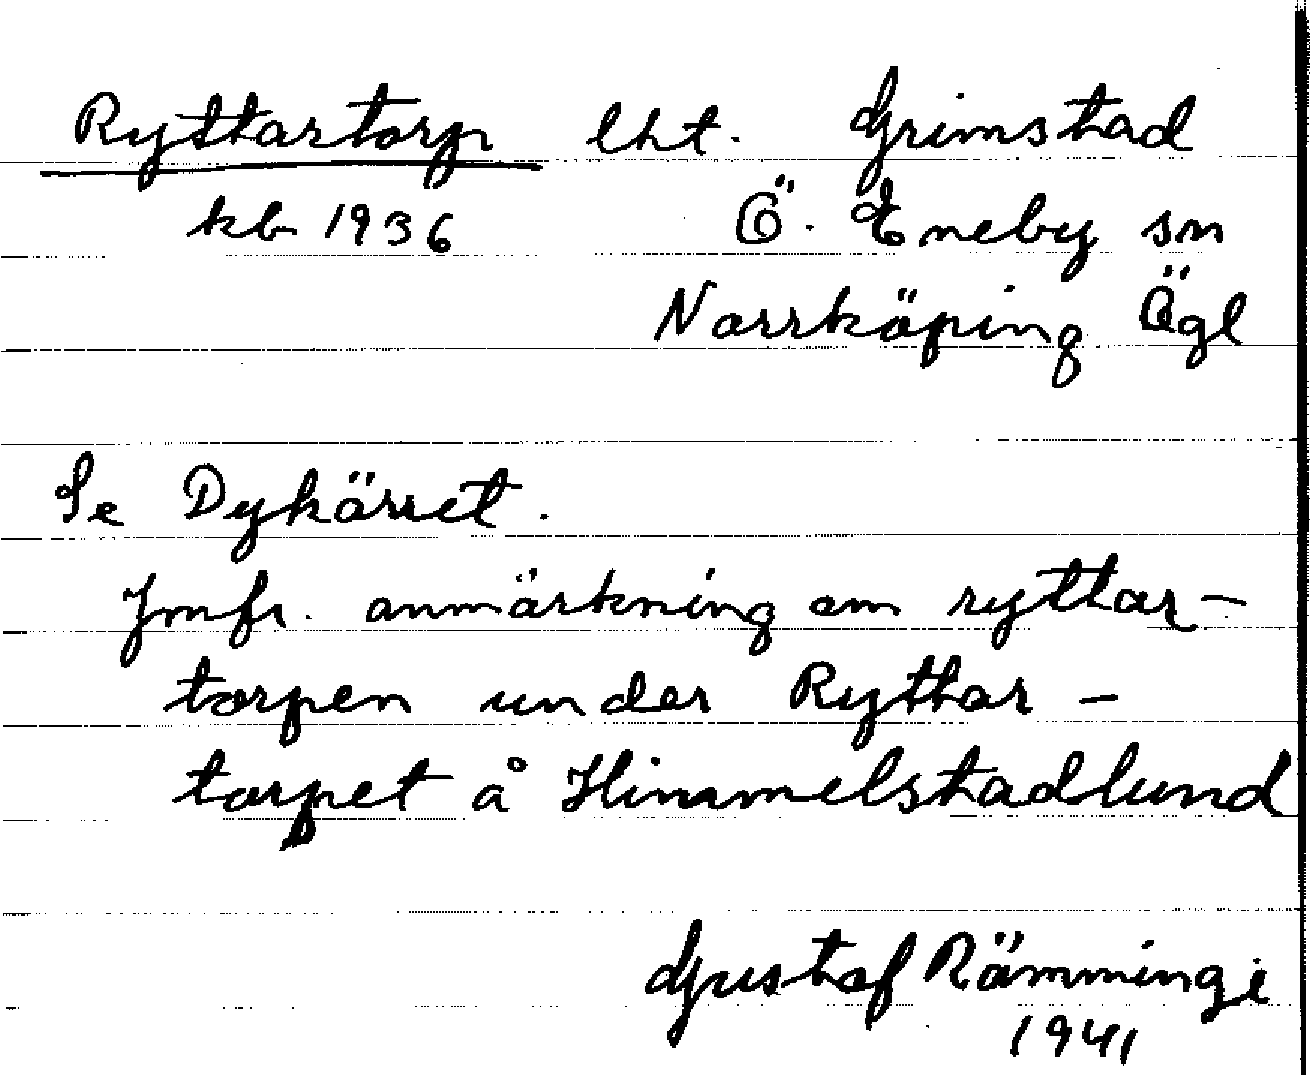 Ryttartorp lht. Grimstad
kb 1936 Ö. Eneby sn
Norrköping Ögl
Se Dykärret.
Jmfr. anmärkning om ryttar-
torpen under Ryttar-
torpet å Himmelstadlund
Gustaf Rämminge
1941